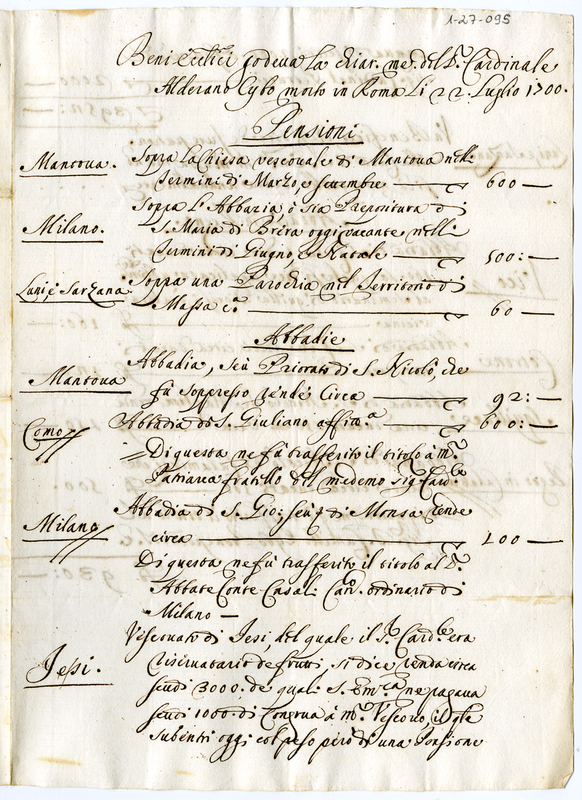 1-27-095
Beni Ecc.tici godeva la chiar. me. del S.r Cardinale
Alderano Cybo morto in Roma li 22 Luglio 1700.
Pensioni
Mantova. Sopra la Chiesa vescovale di Mantova nelli
Termini di Marzo, e settembre 600 —
Milano. Sopra l'Abbazia, ò sia Prepositura di
S. Maria di Brera oggi vacante nelli
Termini di Giugno, e Natale 500: —
Luni e Sarzana Sopra una Parochia nel Territorio di
Massa 60 —
Abbadie
Mantova Abbadia, seù Priorato di S. Nicolò, che
fù soppresso rende circa 92: —
Como Abbadia di S. Giuliano affitt.a 600: —
Di questa ne fù trasferito il titolo à m.r
Patriarca fratello del medemo sig.r Card.le
Milano Abbadia di S. Gio: seù di Monsa rende
circa 100 —
Di questa ne fù trasferito il titolo al S.r
Abbate Conte Casal: Can.o ordinario di
Milano —
Jesi. Vescovato di Jesi, del quale il S.r Card.le era
riservatario de frutti, si dice renda circa
scudi 3000. de quali S. Em.za ne pagava
scudi 1000. di Congrua à m.r Vescovo, il q.le
Subentri oggi col peso però di una Pensione